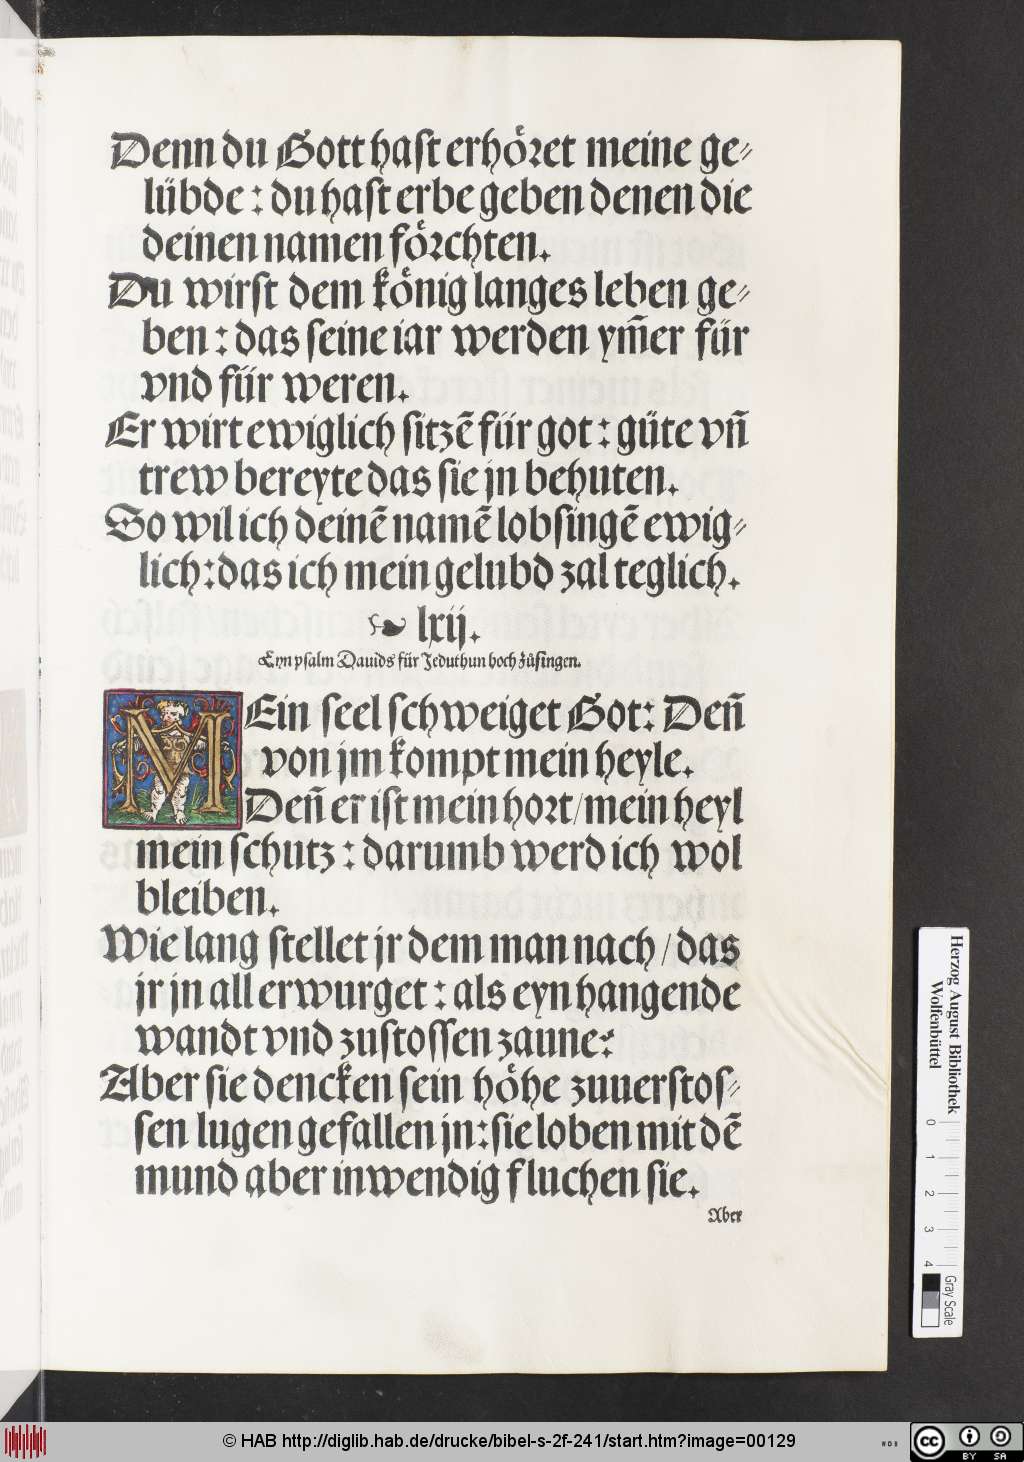 Denn du Gott hast erhöret meine ge⸗
lübde : du hast erbe geben denen die
deinen namen förchten.
Du wirst dem könig langes leben ge⸗
ben : das seine iar werden ym̃er für
vnd für weren.
Er wirt ewiglich sitzẽ für got : güte vñ
trew bereyte das sie jn behuten.
So wil ich deinẽ namẽ lobsingẽ ewig⸗
lich : das ich mein gelubd zal teglich.
lxij.
Eyn psalm Dauids für Jeduthun hoch zůsingen.
MEin seel schweiget Got: Deñ
von jm kompt mein heyle.
Deñ er ist mein hort / mein heyl
mein schutz : darumb werd ich wol
bleiben.
Wie lang stellet jr dem man nach / das
jr jn all erwurget : als eyn hangende
wandt vnd zustossen zaune:
Aber sie dencken sein höhe zuuerstos⸗
sen lugen gefallen jn : sie loben mit dẽ
mund aber inwendig fluchen sie.
Aber
Herzog August Bibliothek
Wolfenbüttel
0 1 2 3 4
Gray Scale
© HAB http://diglib.hab.de/drucke/bibel-s-2f-241/start.htm?image=00129
WDB
cc BY SA